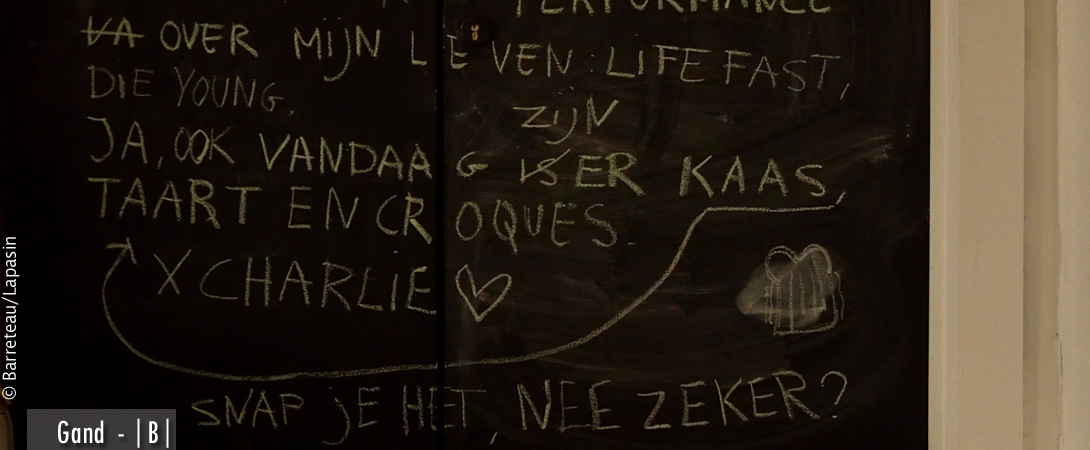 PERFORMANCE
VA OVER MIJN LEVEN: LIFE FAST,
DIE YOUNG.
ZIJN
JA, OOK VANDAAG IS ER KAAS,
TAART EN CROQUES.
X CHARLIE ♡
SNAP JE HET, NEE ZEKER?
© Barreteau/Lapasin
Gand - |B|